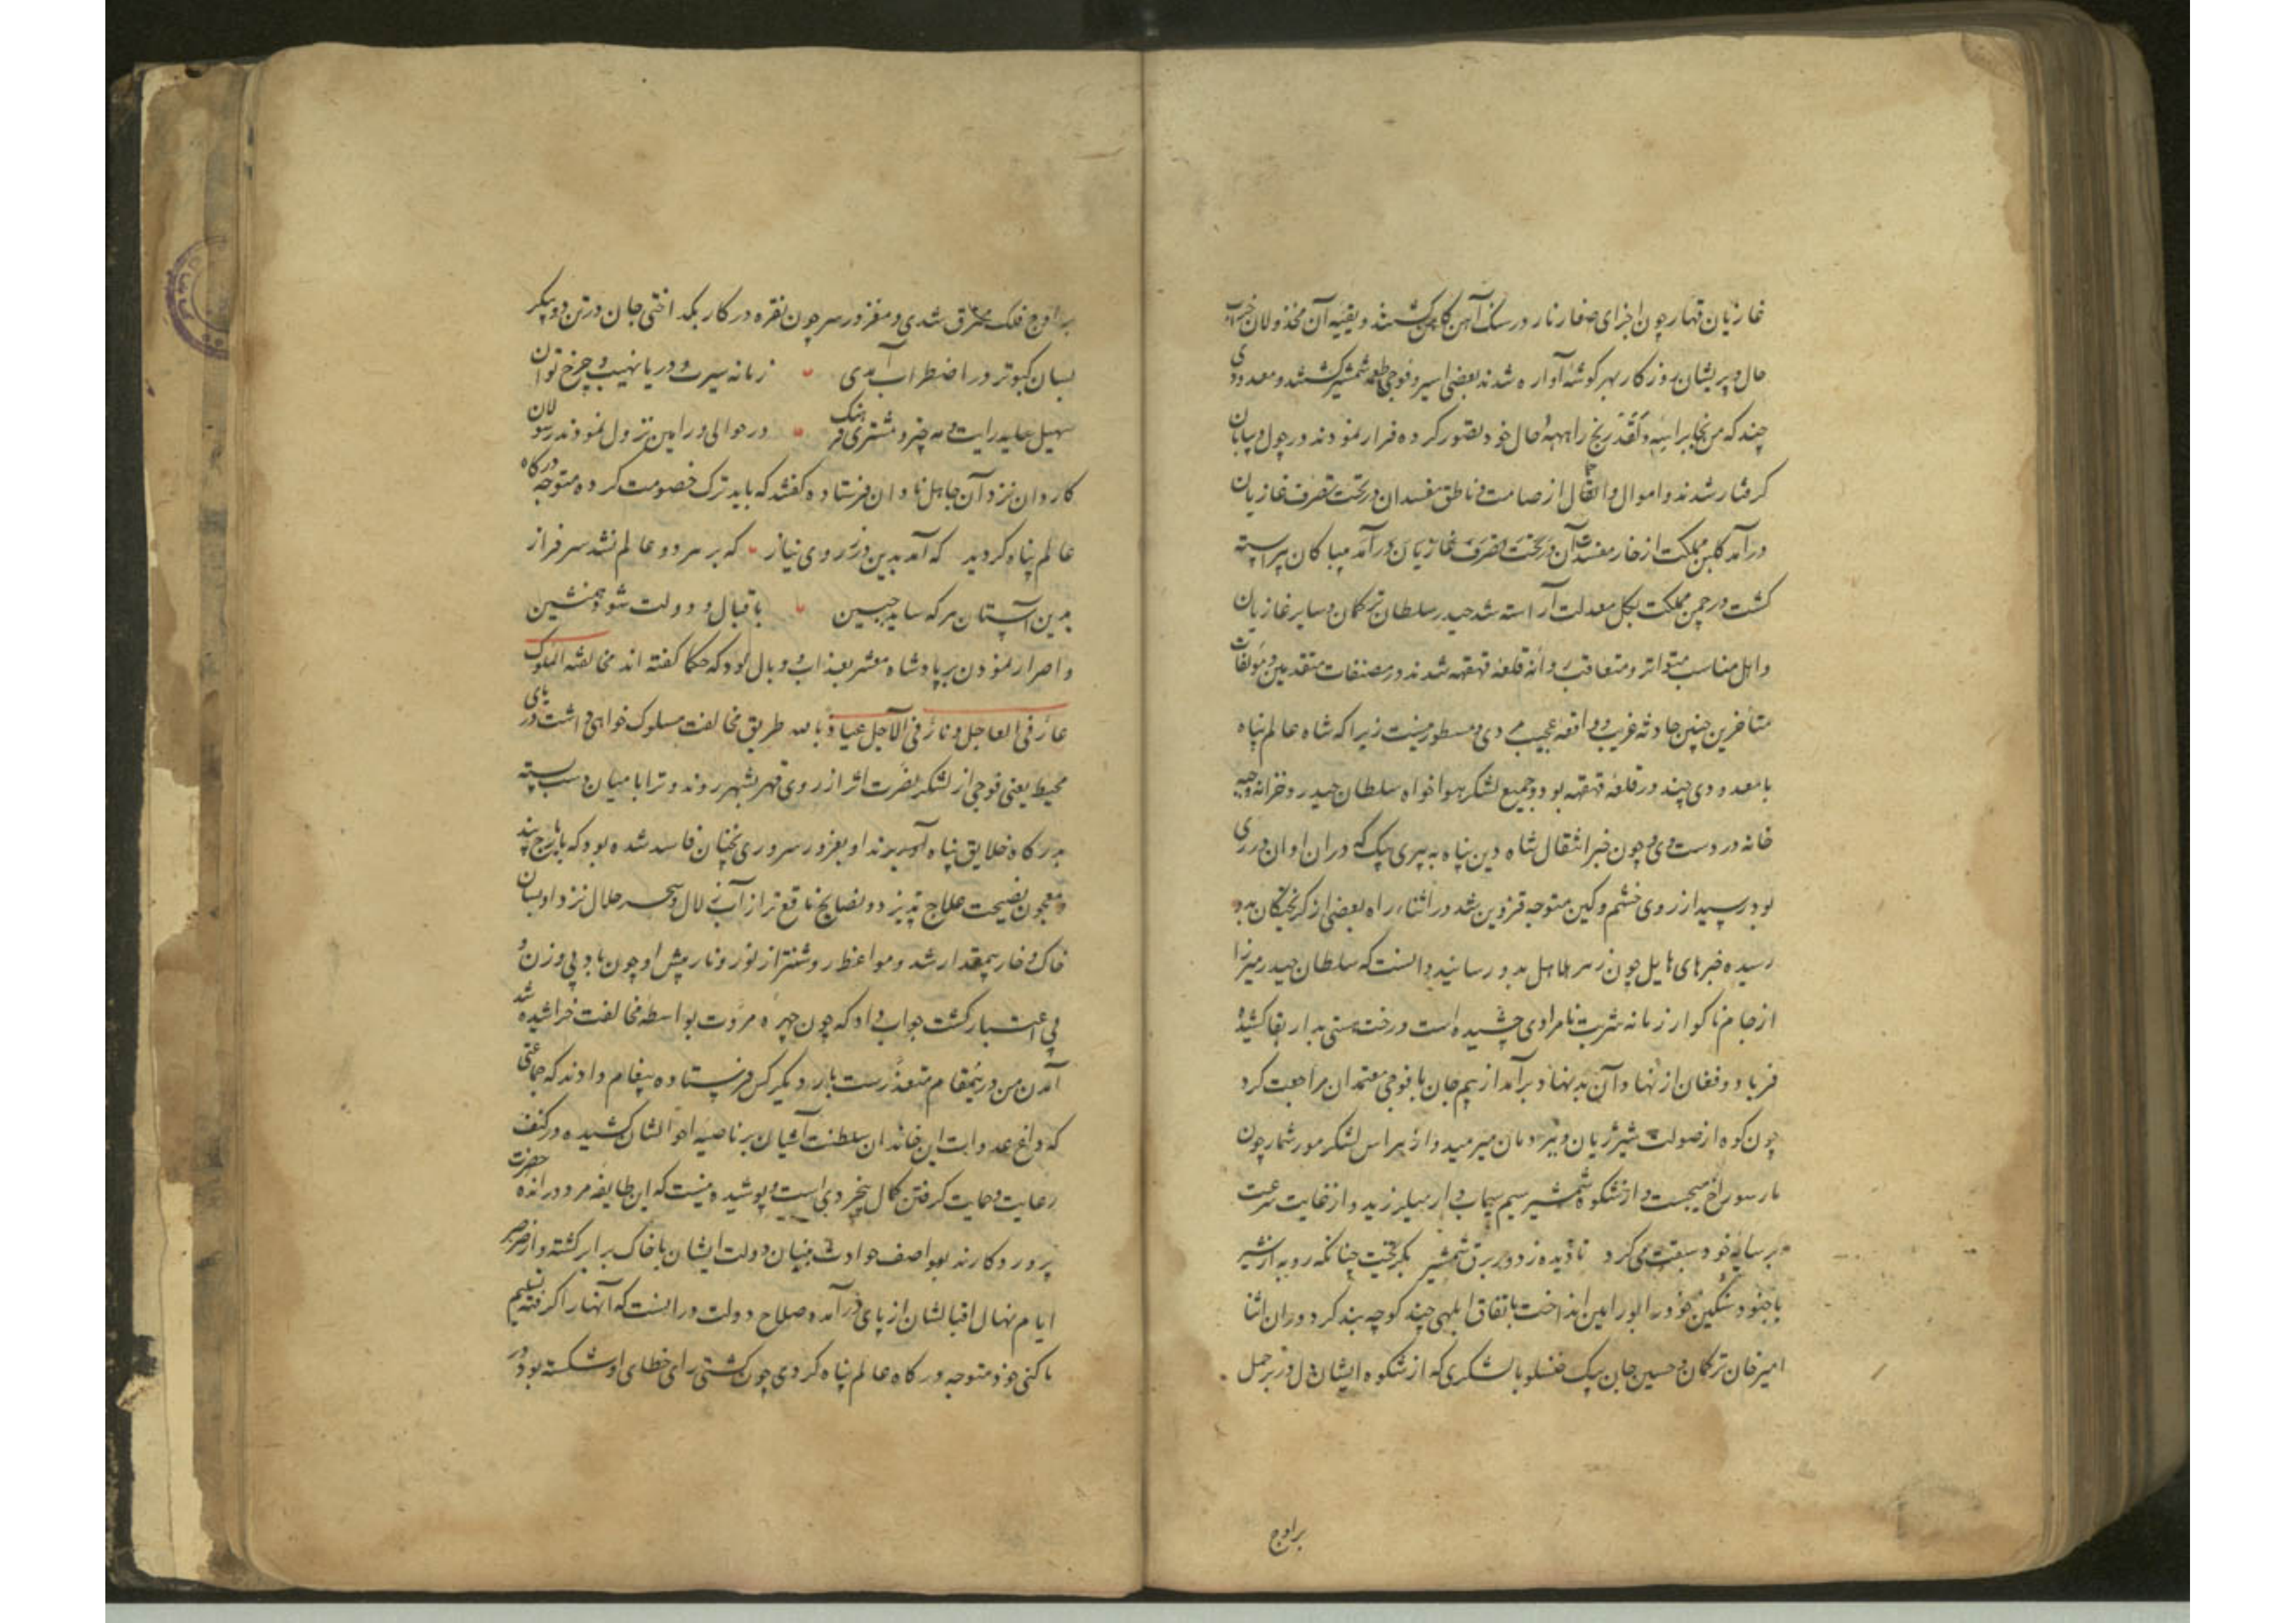 غازیان قهار چون اجزای صغار نار در سنک آهن کامن کشتند و بقیه آن مخذولان خراب
حال و پریشان روزکار بهر کوشه آواره شدند بعضی اسیر و فوجی طعمه شمشیر کشتند و معدودی
چند که من نجا براسه فقد ربح را بهبود حال خود تصور کرده فرار نمودند در چول و بیابان
کرفتار شدند و اموال و اثقال از صامت و ناطق مفسدان در تحت تصرف غازیان
درآمد کلبن مملکت از خار مفسدت آن پیراسته
کشت و چمن مملکت بکل معدلت آراسته شد حیدر سلطان ترکمان و سایر غازیان
و اهل مناسب متواتر و متعاقب روانه قلعه قهقهه شدند در مصنفات متقدمین و مؤلفات
متأخرین چنین حادثه غریب و واقعه عجیب مروی و مسطور نیست زیرا که شاه عالم پناه
با معدودی چند در قلعه قهقهه بود و جمیع لشکر هواخواه سلطان حیدر و خزانه و جبه
خانه در دست وی و چون خبر انتقال شاه دین پناه به پیری بیک که در آن اوان در ری
بود رسید از روی خشم و کین متوجه قزوین شد در اثناء راه بعضی از کریختکان بدو
رسیده خبرهای هایل چون زهر هلاهل بدو رسانید دانست که سلطان حیدر میرزا
از جام ناکوار زمانه شربت نامرادی چشیده است و رخت هستی بدار بقا کشیده
فریاد و فغان از نهاد آن بدنهاد برآمد از بیم جان با فوجی معتمدان مراجعت کرد
چون کوه از صولت شیر ژیان و ببر دمان میرمید و از هراس لشکر مور شمار چون
مار سوراخ میجست و از شکوه شمشیر سیم سیماب وار میلرزید و از غایت سرعت
بر سایه خود سبقت می کرد نادیده ز دور برق شمشیر بکریخت چنانکه روبه از شیر
با جنود سنکین خود را بورامین انداخت باتفاق ابلهی چند کوچه بند کرد در آن اثنا
امیر خان ترکمان و حسین جان بیک خنسلو با لشکری که از شکوه ایشان دل در بر حمل
بر اوج
بر اوج فلک محترق شدی و مغز در سر چون نقره در کار بکداختی جان در تن دو پیکر
بسان کبوتر در اضطراب آمدی زمانه سیرت و دریا نهیب و چرخ توان
سهیل رایت و مه چتر و مشتری فرهنک در حوالی ورامین نزول نمودند رسولان
کاردان نزد آن جاهل نادان فرستاده کفتند که باید ترک خصومت کرده متوجه درکاه
عالم پناه کردید که آمد بدین در ز روی نیاز که بر هر دو عالم نشد سرفراز
بدین آستان هر که ساید جبین باقبال و دولت شود همنشین
و اصرار نمودن بر پادشاه مثمر عذاب و وبال بود که حکما کفته اند مخالفة الملوک
عار فی العاجل و نار فی الآجل عیاذ بالله طریق مخالفت مسلوک خواهی داشت دریای
محیط یعنی فوجی از لشکر نصرت اثر از روی قهر بشهر روند و ترا با میان دست بسته
بدرکاه خلایق پناه آورند او بغرور سروری نچنان فاسد شده بود که بایارج پند
و معجون نصیحت علاج پذیرد و نصایح نافع تر از آب زلال و سحر حلال نزد او بسان
خاک و خار بیمقدار شد و مواعظ روشنتر از نور و نار پیش او چون باد بی وزن و
بی اعتبار کشت جواب داد که چون چهره مروت بواسطه مخالفت خراشیده شد
آمدن من درینمقام متعذرست بار دیکر کس فرستاده پیغام دادند که جماعتی
که داغ عداوت این خاندان سلطنت آشیان بر ناصیه احوالشان کشیده در کنف
رعایت و حمایت کرفتن کمال بیخردی است و پوشیده نیست که این طایفه مردود رانده حضرت
پرورد کارند بعواصف حوادث بنیان دولت ایشان با خاک برابر کشته و از صرصر
ایام نهال اقبالشان از پای درآمده صلاح دولت در انست که آنها را کرفته تسلیم
ما کنی و خود متوجه درکاه عالم پناه کردی چون کشتی رای خطای او شکسته بود در